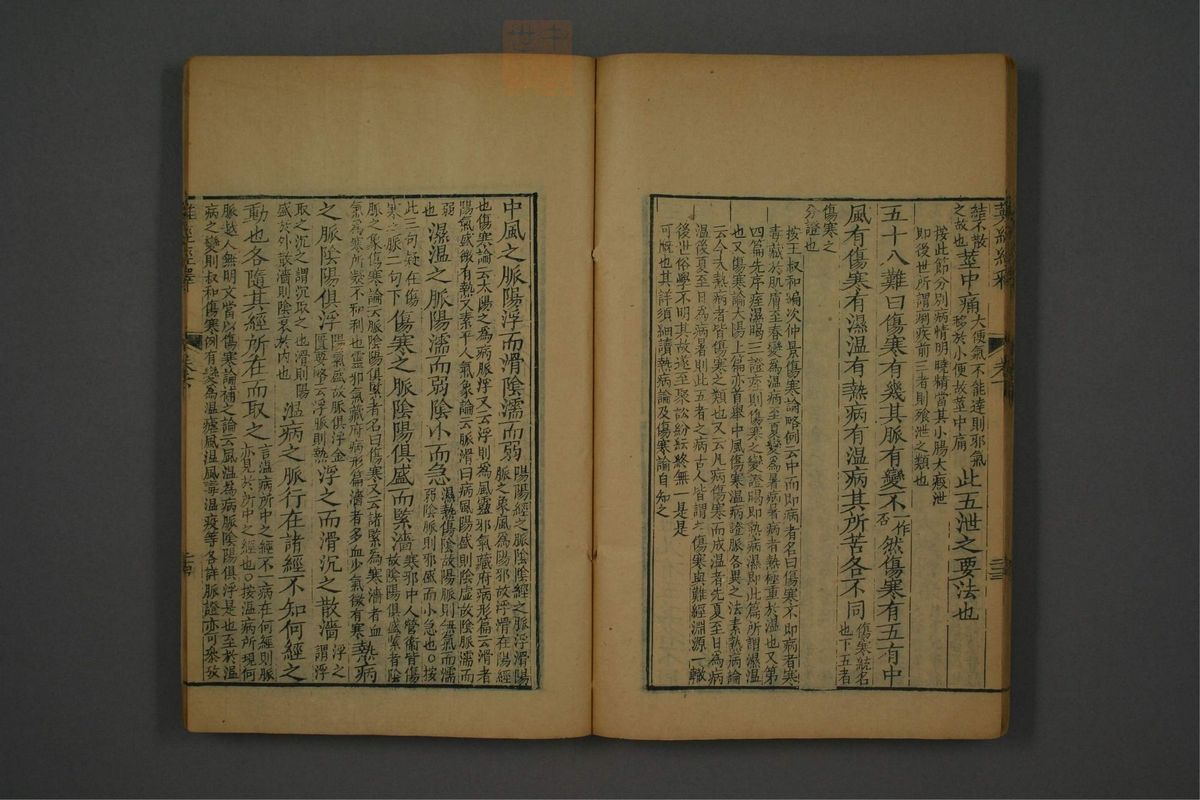 難經經釋 卷下 三十三
結不散之故也莖中痛大便氣不能達則邪氣移於小便故莖中痛此五泄之要法也
按此節分別病情明曉精當其小腸大瘕泄
即後世所謂痢疾前三者則飧泄之類也
五十八難曰傷寒有幾其脈有變不一作否然傷寒有五有中
風有傷寒有濕溫有熱病有溫病其所苦各不同傷寒統名也下五者
傷寒之分證也
按王叔和編次仲景傷寒論略例云中而即病者名曰傷寒不即病者寒
毒藏於肌膚至春變為溫病至夏變為暑病暑病者熱極重於溫也又第
四篇先序痓濕暍三證亦則傷寒之變證暍即熱病濕即此篇所謂濕溫
也又傷寒論太陽上篇亦首舉中風傷寒溫病證脈各異之法素熱病論
云今夫熱病者皆傷寒之類也又云凡病傷寒而成溫者先夏至日為病
溫後夏至日為病暑則此五者之病古人皆謂之傷寒與難經淵源一轍
後世俗學不明其故遂至聚訟紛紜終無一是是
可慨也其詳須細讀熱病論及傷寒論自知之
中風之脈陽浮而滑陰濡而弱陽陽經之脈陰陰經之脈浮滑陽脈之象風為陽邪故浮滑在陽經
也傷寒論云太陽之為病脈浮又云浮則為風靈邪氣藏府病形篇云滑者
陽氣盛微有熱又素平人氣象論云脈滑曰病風陽盛則陰虛故陰濡而
弱也濕溫之脈陽濡而弱陰小而急濕熱傷陰故陽脈則無氣而濡弱陰脈則邪盛而小急也○按
此三句疑在傷寒之脈二句下傷寒之脈陰陽俱盛而緊濇寒邪中人營衛皆傷故陰陽俱盛緊者陰
脈之象傷寒論云脈陰陽俱緊者名曰傷寒又云諸緊為寒濇者血氣為寒所凝不和利也靈邪氣藏府病形篇濇者多血少氣微有寒熱病
之脈陰陽俱浮陽氣盛故脈俱浮金匱要略云浮脈則熱浮之而滑沉之散濇浮之謂浮
取之沉之謂沉取之也滑則陽盛於外散濇則陰衰於內也溫病之脈行在諸經不知何經之
動也各隨其經所在而取之言溫病所中之經不一病在何經則脈亦見於所中之經也○按溫病所現何
脈越人無明文當以傷寒論補之論云風溫為病脈陰陽俱浮是也至於溫
病之變則叔和傷寒例有變為溫瘧風溫風毒溫疫等各詳脈證亦可參攷
難經經釋 卷下 三十四